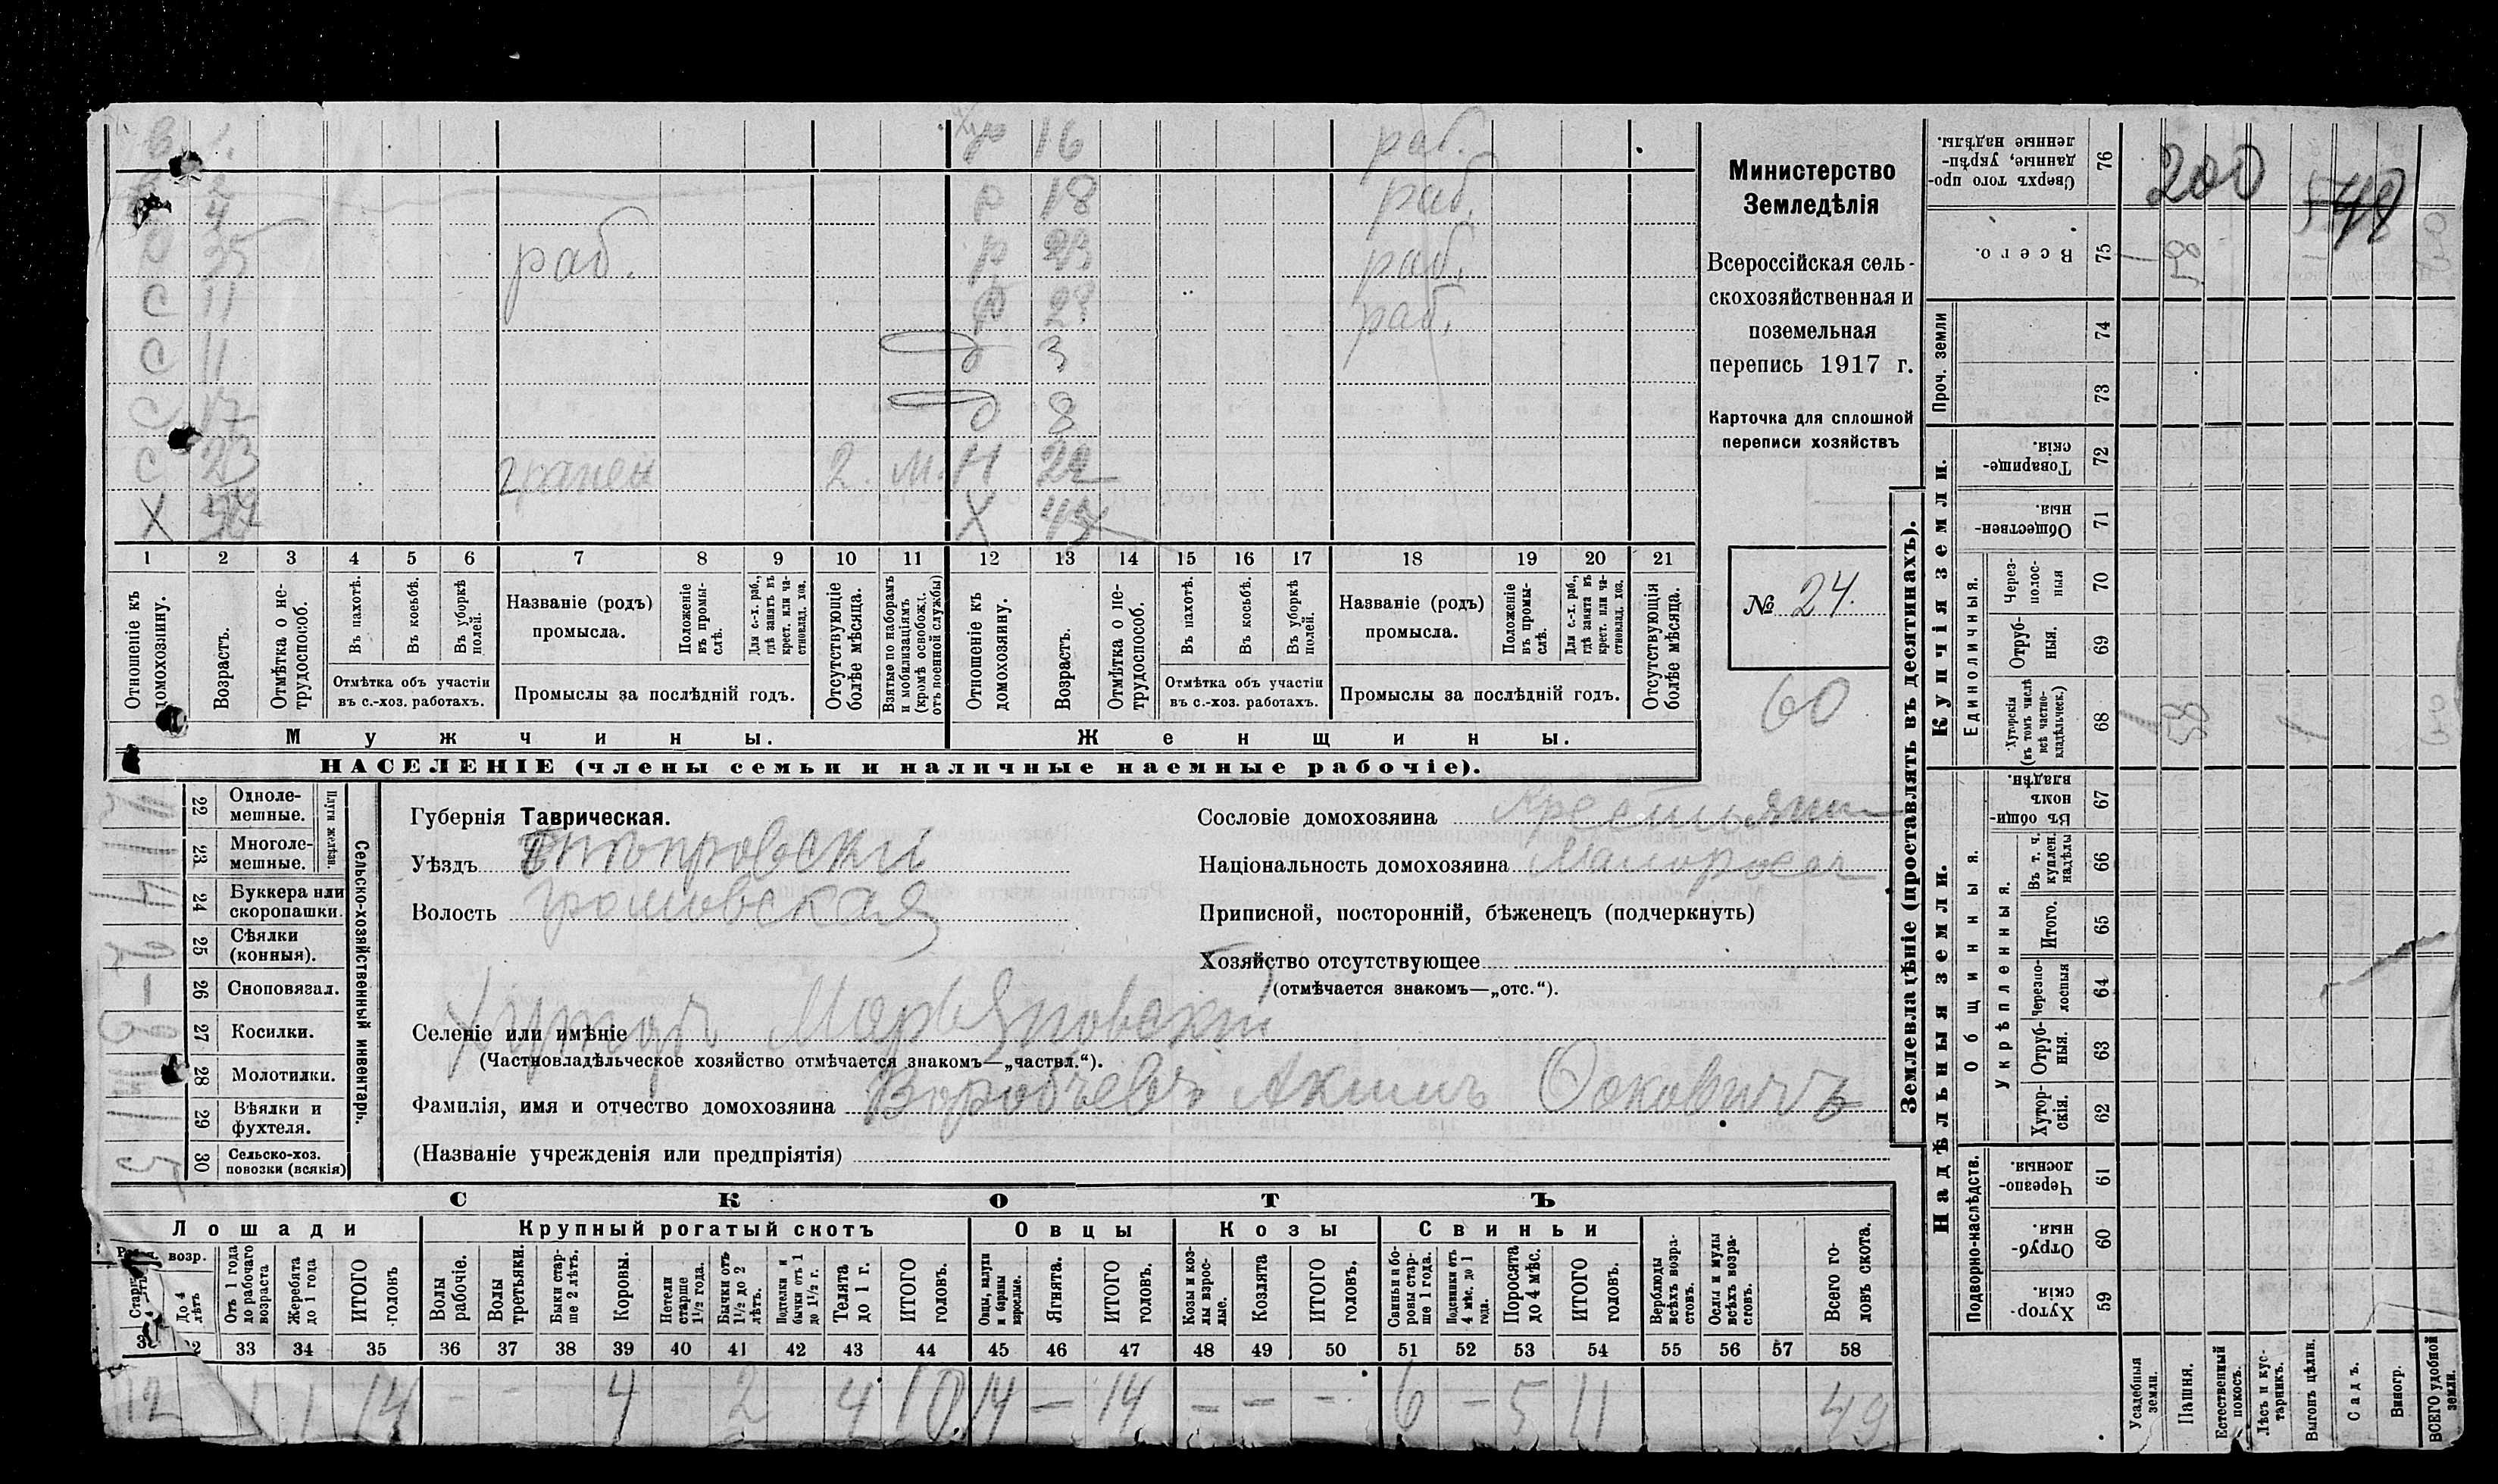 в 1. р 16 раб.
2 р 18 раб.
4
р 25 раб. р 23 раб.
С 11 р 23 раб.
С 11 д 3
С 17 д 8
С 23 2. м. н 22
Х Х 47
1 2 3 4 5 6 7 8 9 10 11 12 13 14 15 16 17 18 19 20 21
Отношеніе къ домохозяину.
Возрастъ.
Отмѣтка о не-трудоспособ.
Въ пахотѣ.
Въ косьбѣ.
Въ уборкѣ полей.
Отмѣтка объ участіи
въ с.-хоз. работахъ.
Названіе (родъ)
промысла.
Положеніе въ промы-слѣ.
Для с.-х. раб., гдѣ занятъ въ крест. или ча-стновлад. хоз.
Промыслы за послѣдній годъ.
Отсутствующіе болѣе мѣсяца.
Взятые по наборамъ и мобилизаціямъ (кромѣ освобожд. отъ военной службы)
Отношеніе къ домохозяину.
Возрастъ.
Отмѣтка о не-трудоспособ.
Въ пахотѣ.
Въ косьбѣ.
Въ уборкѣ полей.
Отмѣтка объ участіи
въ с.-хоз. работахъ.
Названіе (родъ)
промысла.
Положеніе въ промы-слѣ.
Для с.-х. раб., гдѣ занята въ крест. или ча-стновлад. хоз.
Промыслы за послѣдній годъ.
Отсутствующія болѣе мѣсяца.
Мужчины.
Женщины.
НАСЕЛЕНІЕ (члены семьи и наличные наемные рабочіе).
Министерство
Земледѣлія
Всероссійская сель-
скохозяйственная и
поземельная
перепись 1917 г.
Карточка для сплошной
переписи хозяйствъ
№ 24.
60
22 Одноле-мешные.
23 Многоле-мешные.
Плуги желѣзн.
24 Буккера или скоропашки.
25 Сѣялки (конныя).
26 Сноповязал.
27 Косилки.
28 Молотилки.
29 Вѣялки и фухтеля.
30 Сельско-хоз. повозки (всякія)
Сельско-хозяйственный инвентарь.
Губернія Таврическая.
Уѣздъ Днѣпровскій
Волость Громовская
Селеніе или имѣніе Хуторъ Марьяновскій
(Частновладѣльческое хозяйство отмѣчается знакомъ—„частвл.“).
Фамилія, имя и отчество домохозяина Воробьевъ Акимъ
(Названіе учрежденія или предпріятія)
Сословіе домохозяина Крестьянин
Національность домохозяина Малоросъ
Приписной, посторонній, бѣженецъ (подчеркнуть)
Хозяйство отсутствующее
(отмѣчается знакомъ—„отс.“).
СКОТЪ
Лошади Крупный рогатый скотъ Овцы Козы Свиньи
возр.
До 4 лѣтъ
Отъ 1 года до рабочаго возраста
Жеребята до 1 года
ИТОГО головъ
Волы рабочіе.
Волы третьяки.
Быки стар-ше 2 лѣтъ.
Коровы.
Нетели старше 1½ года.
Бычки отъ 1½ до 2 лѣтъ.
Подтелки и бычки отъ 1 до 1½ г.
Телята до 1 г.
ИТОГО головъ.
Овцы, валухи и бараны взрослые.
Ягнята.
ИТОГО головъ.
Козы и коз-лы взрос-лые.
Козлята
ИТОГО головъ.
Свиньи и бо-ровы стар-ше 1 года.
Подсвинки отъ 4 мѣс. до 1 года.
Поросята до 4 мѣс.
ИТОГО головъ.
Верблюды всѣхъ возра-стовъ.
Ослы и мулы всѣхъ возра-стовъ.
Всего го-ловъ скота.
33 34 35 36 37 38 39 40 41 42 43 44 45 46 47 48 49 50 51 52 53 54 55 56 57 58
12 1 1 14 - - 4 2 4 10. 14 — 14 — — - 6 — 5 11 49
Землевладѣніе (проставлять въ десятинахъ).
Купчія земли.
Надѣльныя земли.
76 Сверхъ того про-данные, укрѣп-ленные надѣлы.
200 548
75 Всего.
Проч. земли
74
73
72 Товарище-скія.
71 Обществен-ныя.
Единоличныя.
70 Через-полос-ныя
69 Отруб-ныя.
68 Хуторскія (въ томъ числѣ всѣ частно-владѣльческ.)
Общинныя.
67 Въ общи-номъ владѣн.
66 Въ т. ч. куплен. надѣлы
Укрѣпленныя.
65 Итого.
64 Черезпо-лосныя
63 Отруб-ныя.
62 Хутор-скія.
Подворно-наслѣдств.
61 Черезпо-лосныя.
60 Отруб-ныя.
59 Хутор-скія
Усадебныя земли.
Пашня.
Естественный покосъ.
Лѣсъ и кус-тарникъ.
Выгонъ цѣлин.
Садъ.
Виногр.
ВСЕГО удобной земли.